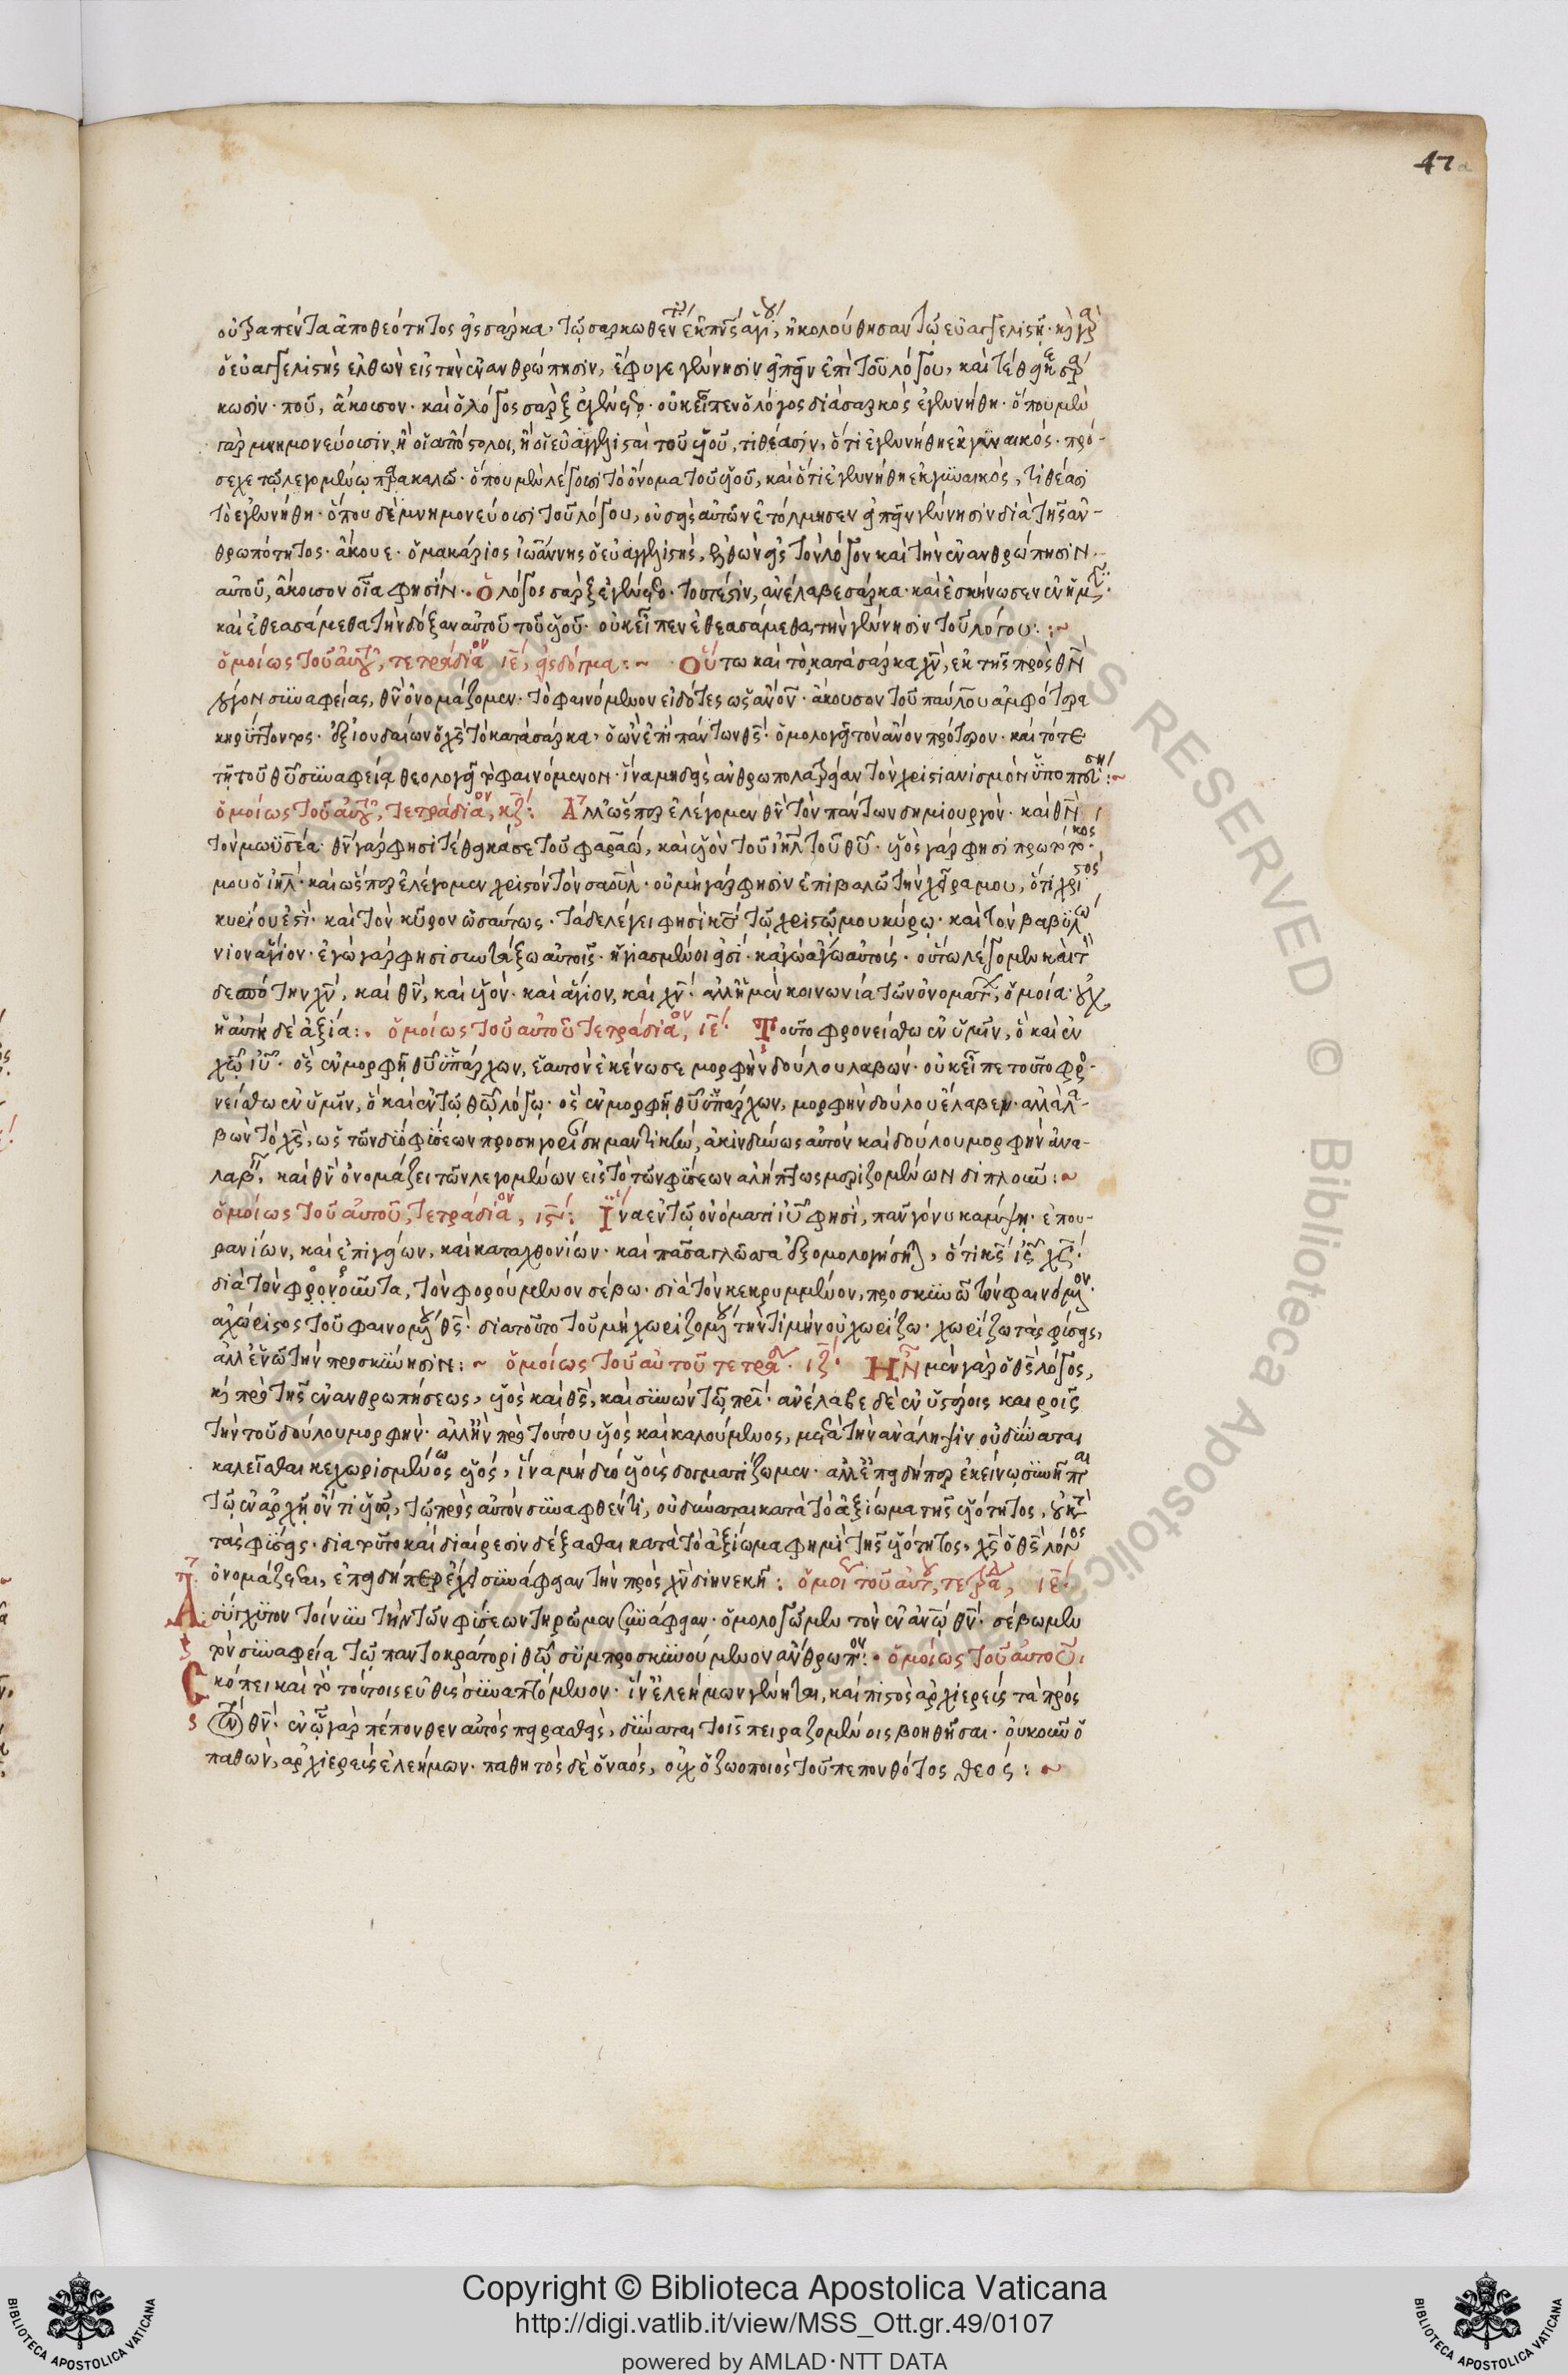 47a
οὐ τραπέντα ἀπο θεότητος εἰς σάρκα, τῷ σαρκωθέντι ἐκ πνς ἁγίου, ἠκολούθησαν τῷ εὐαγγελιστῇ· καὶ γὰρ
ὁ εὐαγγελιστὴς ἐλθὼν εἰς τὴν ἐνανθρώπησιν, ἔφυγε γέννησιν εἰπεῖν ἐπὶ τοῦ λόγου, καὶ τέθεικε σάρ
κωσιν· ποῦ, ἄκουσον· καὶ ὁ λόγος σὰρξ ἐγένετο· οὐκ εἶπεν ὁ λόγος διὰ σαρκὸς ἐγεννήθη· ὅπου μὲν
γὰρ μνημονεύουσιν, ἢ οἱ ἀπόστολοι, ἢ οἱ εὐαγγελισταὶ τοῦ υἱοῦ, τιθέασιν, ὅτι ἐγεννήθη ἐκ γυναικός· πρό-
σεχε τῷ λεγομένῳ παρακαλῶ· ὅπου μὲν λέγουσι τὸ ὄνομα τοῦ υἱοῦ, καὶ ὅτι ἐγεννήθη ἐκ γυναικὸς, τιθέασι
τὸ ἐγεννήθη· ὅπου δὲ μνημονεύουσι τοῦ λόγου, οὐδεὶς αὐτῶν ἐτόλμησεν εἰπεῖν γέννησιν διὰ τῆς ἀν-
θρωπότητος· ἄκουε· ὁ μακάριος ἰωάννης ὁ εὐαγγελιστὴς, ἐλθὼν εἰς τὸν λόγον καὶ τὴν ἐνανθρώπησιν
αὐτοῦ, ἄκουσον οἷα φησίν· ὁ λόγος σὰρξ ἐγένετο· τουτέστιν, ἀνέλαβε σάρκα· καὶ ἐσκήνωσεν ἐν ἡμῖν·
καὶ ἐθεασάμεθα τὴν δόξαν αὐτοῦ τοῦ υἱοῦ· οὐκ εἶπεν ἐθεασάμεθα τὴν γέννησιν τοῦ λόγου:~
ὁμοίως τοῦ αὐτοῦ, τετράδιον ιε, εἰς δόγμα:~ Οὕτω καὶ τὸν κατὰ σάρκα χν, ἐκ τῆς πρὸς θν
λόγον συναφείας, θν ὀνομάζομεν· τὸ φαινόμενον εἰδότες ὡς ανον· ἄκουσον τοῦ παύλου ἀμφότερα
κηρύττοντος· ἐξ ἰουδαίων ὁ χς τὸ κατὰ σάρκα, ὁ ὢν ἐπὶ πάντων θς· ὁμολογεῖ τὸν ανον πρότερον· καὶ τότε
τῇ τοῦ θυ συναφείᾳ θεολογεῖ τὸ φαινόμενον· ἵνα μηδεὶς ἀνθρωπολατρεῖν τὸν χριστιανισμὸν ὑποπτεύση:~
ὁμοίως τοῦ αὐτοῦ, τετράδιον, κζ: Ἀλλ ὥσπερ ἐλέγομεν θν τὸν πάντων δημιουργόν· καὶ θν
τὸν μωϋσέα· θν γάρ φησι τέθεικά σε τοῦ φαραώ, καὶ υἱὸν τοῦ ιηλ τοῦ θυ· υἱὸς γάρ φησι πρωτότοκος
μου ὁ ιηλ· καὶ ὥσπερ ἐλέγομεν χριστὸν τὸν σαούλ· οὐ μὴ γάρ φησιν ἐπιβαλῶ τὴν χεῖρα μου, ὅτι χριστὸς
κυρίου ἐστὶ· καὶ τὸν κῦρον ὡσαύτως· τάδε λέγει φησὶ κς τῷ χριστῷ μου κύρῳ· καὶ τὸν βαβυλώ
νιον ἅγιον· ἐγὼ γάρ φησι συντάξω αὐτοῖς· ἡγιασμένοι εἰσί· κἀγὼ ἄγω αὐτούς· οὕτω λέγομεν καὶ τὸν
δεσπότην χν, καὶ θν, καὶ υἱόν· καὶ ἅγιον, καὶ χν· ἀλλ ἡ μὲν κοινωνία τῶν ὀνομάτων, ὁμοία· οὐχ
ἡ αὐτὴ δὲ ἀξία: ὁμοίως τοῦ αὐτοῦ τετράδιον, ιε· Τοῦτο φρονείσθω ἐν ὑμῖν, ὃ καὶ ἐν
χω ιυ· ὃς ἐν μορφῇ θυ ὑπάρχων, ἑαυτὸν ἐκένωσε μορφὴν δούλου λαβών· οὐκ εἶπε τοῦτο φρο-
νείσθω ἐν ὑμῖν, ὃ καὶ ἐν τῷ θω λόγῳ· ὃς ἐν μορφῇ θυ ὑπάρχων, μορφὴν δούλου ἔλαβεν· ἀλλὰ λα-
βὼν τὸ χς, ὡς τῶν δύο φύσεων προσηγορίαν σημαντικὴν, ἀκινδύνως αὐτὸν καὶ δούλου μορφὴν ἀνα-
λαβεῖν, καὶ θν ὀνομάζει τῶν λεγομένων εἰς τὸ τῶν φύσεων ἀλήπτως μεριζομένων διπλοῦν:~
ὁμοίως τοῦ αὐτοῦ, τετράδιον, ις: Ἵνα ἐν τῷ ὀνόματι ιυ φησὶ, πᾶν γόνυ κάμψῃ· ἐπου-
ρανίων, καὶ ἐπιγείων, καὶ καταχθονίων· καὶ πᾶσα γλῶσσα ἐξομολογήσηται, ὅτι κς ις χς·
διὰ τὸν φοροῦντα, τὸν φορούμενον σέβω· διὰ τὸν κεκρυμμένον, προσκυνῶ τὸν φαινόμενον·
ἀχώριστος τοῦ φαινομένου θς· διὰ τοῦτο τοῦ μὴ χωριζομένου τὴν τιμὴν οὐ χωρίζω· χωρίζω τὰς φύσεις,
ἀλλ ἑνῶ τὴν προσκύνησιν:~ ὁμοίως τοῦ αὐτοῦ τετράδιον· ιζ· Ἦν μὲν γὰρ ὁ θς λόγος,
καὶ πρὸ τῆς ἐνανθρωπήσεως, υἱὸς καὶ θς, καὶ συνὼν τῷ πρι· ἀνέλαβε δὲ ἐν ὑστέροις καιροῖς
τὴν τοῦ δούλου μορφήν· ἀλλ ὢν πρὸ τούτου υἱὸς καὶ καλούμενος, μετὰ τὴν ἀνάληψιν οὐ δύναται
καλεῖσθαι κεχωρισμένως υἱός, ἵνα μὴ δύο υἱοὺς δογματίζωμεν· ἀλλ ἐπειδήπερ ἐκείνῳ συνῆπται
τῷ ἐν ἀρχῇ ὄντι υἱῷ, τῷ πρὸς αὐτὸν συναφθέντι, οὐ δύναται κατὰ τὸ ἀξίωμα τῆς υἱότητος, οὐ κατὰ
τὰς φύσεις· διὰ τοῦτο καὶ διαίρεσιν δέξασθαι κατὰ τὸ ἀξίωμα φημὶ τῆς υἱότητος, χς ὁ θς λόγος
ὀνομάζεται, ἐπειδήπερ ἔχει συνάφειαν τὴν πρὸς χν διηνεκῆ: ὁμοίως τοῦ αὐτοῦ, τετράδιον, ιε·
Ἀσύγχυτον τοίνυν τὴν τῶν φύσεων τηρῶμεν συνάφειαν· ὁμολογῶμεν τὸν ἐν ανω θν· σέβωμεν
τὸν συναφείᾳ τῷ παντοκράτορι θω συμπροσκυνούμενον ἄνθρωπον: ὁμοίως τοῦ αὐτοῦ:
Σκόπει καὶ τὸ τούτοις εὐθὺς συναπτόμενον· ἵν ἐλεήμων γένηται, καὶ πιστὸς ἀρχιερεὺς τὰ πρὸς
τὸν θν· ἐν ᾧ γὰρ πέπονθεν αὐτὸς πειρασθεὶς, δύναται τοῖς πειραζομένοις βοηθῆσαι· οὐκοῦν ὁ
παθὼν, ἀρχιερεὺς ἐλεήμων· παθητὸς δὲ ὁ ναός, οὐχ ὁ ζωοποιὸς τοῦ πεπονθότος θεός:~
RESERVED © Biblioteca Apostolica
Copyright © Biblioteca Apostolica Vaticana
http://digi.vatlib.it/view/MSS_Ott.gr.49/0107
powered by AMLAD·NTT DATA
BIBLIOTECA APOSTOLICA VATICANA
BIBLIOTECA APOSTOLICA VATICANA